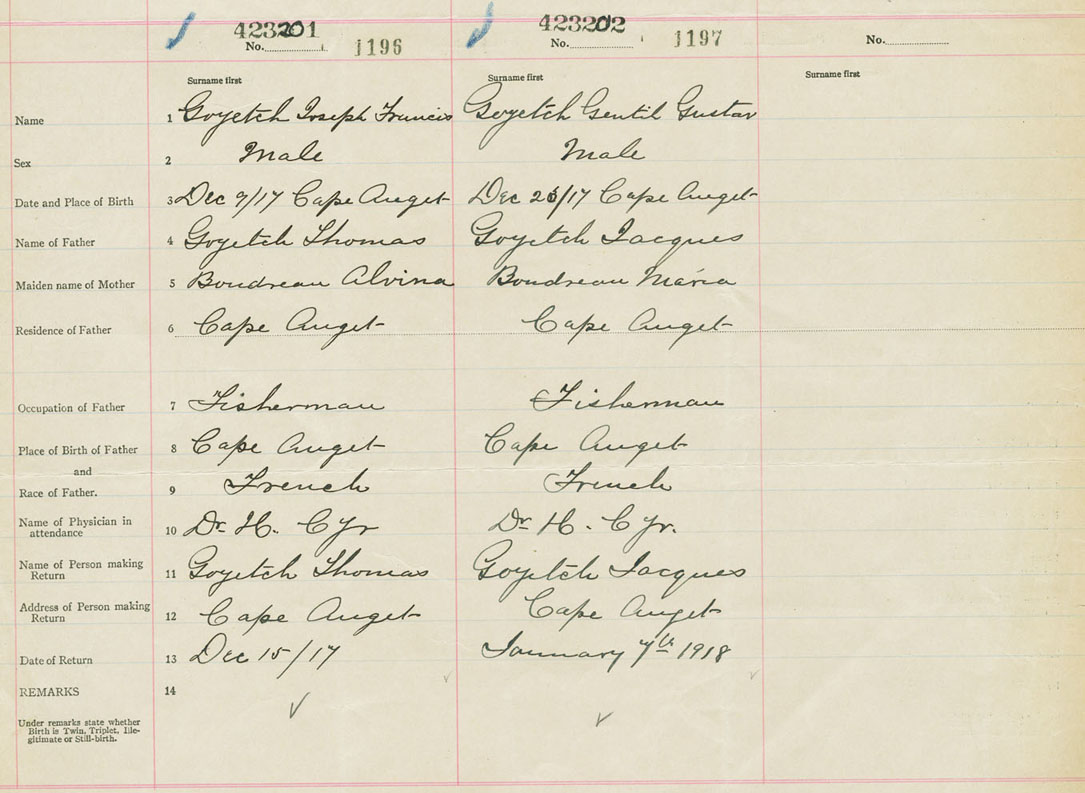 423201 423202
No. 1196 No. 1197 No.
Surname first Surname first Surname first
Name 1 Goyetch Joseph Francis Goyetch Gentil Gustav
Sex 2 Male Male
Date and Place of Birth 3 Dec 9/17 Cape Auget Dec 26/17 Cape Auget
Name of Father 4 Goyetch Thomas Goyetch Jacques
Maiden name of Mother 5 Boudreau Alvina Boudreau Maria
Residence of Father 6 Cape Auget Cape Auget
Occupation of Father 7 Fisherman Fisherman
Place of Birth of Father 8 Cape Auget Cape Auget
and
Race of Father. 9 French French
Name of Physician in
attendance 10 Dr. H. Cyr Dr H. Cyr.
Name of Person making
Return 11 Goyetch Thomas Goyetch Jacques
Address of Person making
Return 12 Cape Auget Cape Auget
Date of Return 13 Dec 15/17 January 7th 1918
REMARKS 14
Under remarks state whether
Birth is Twin, Triplet, Ille-
gitimate or Still-birth.